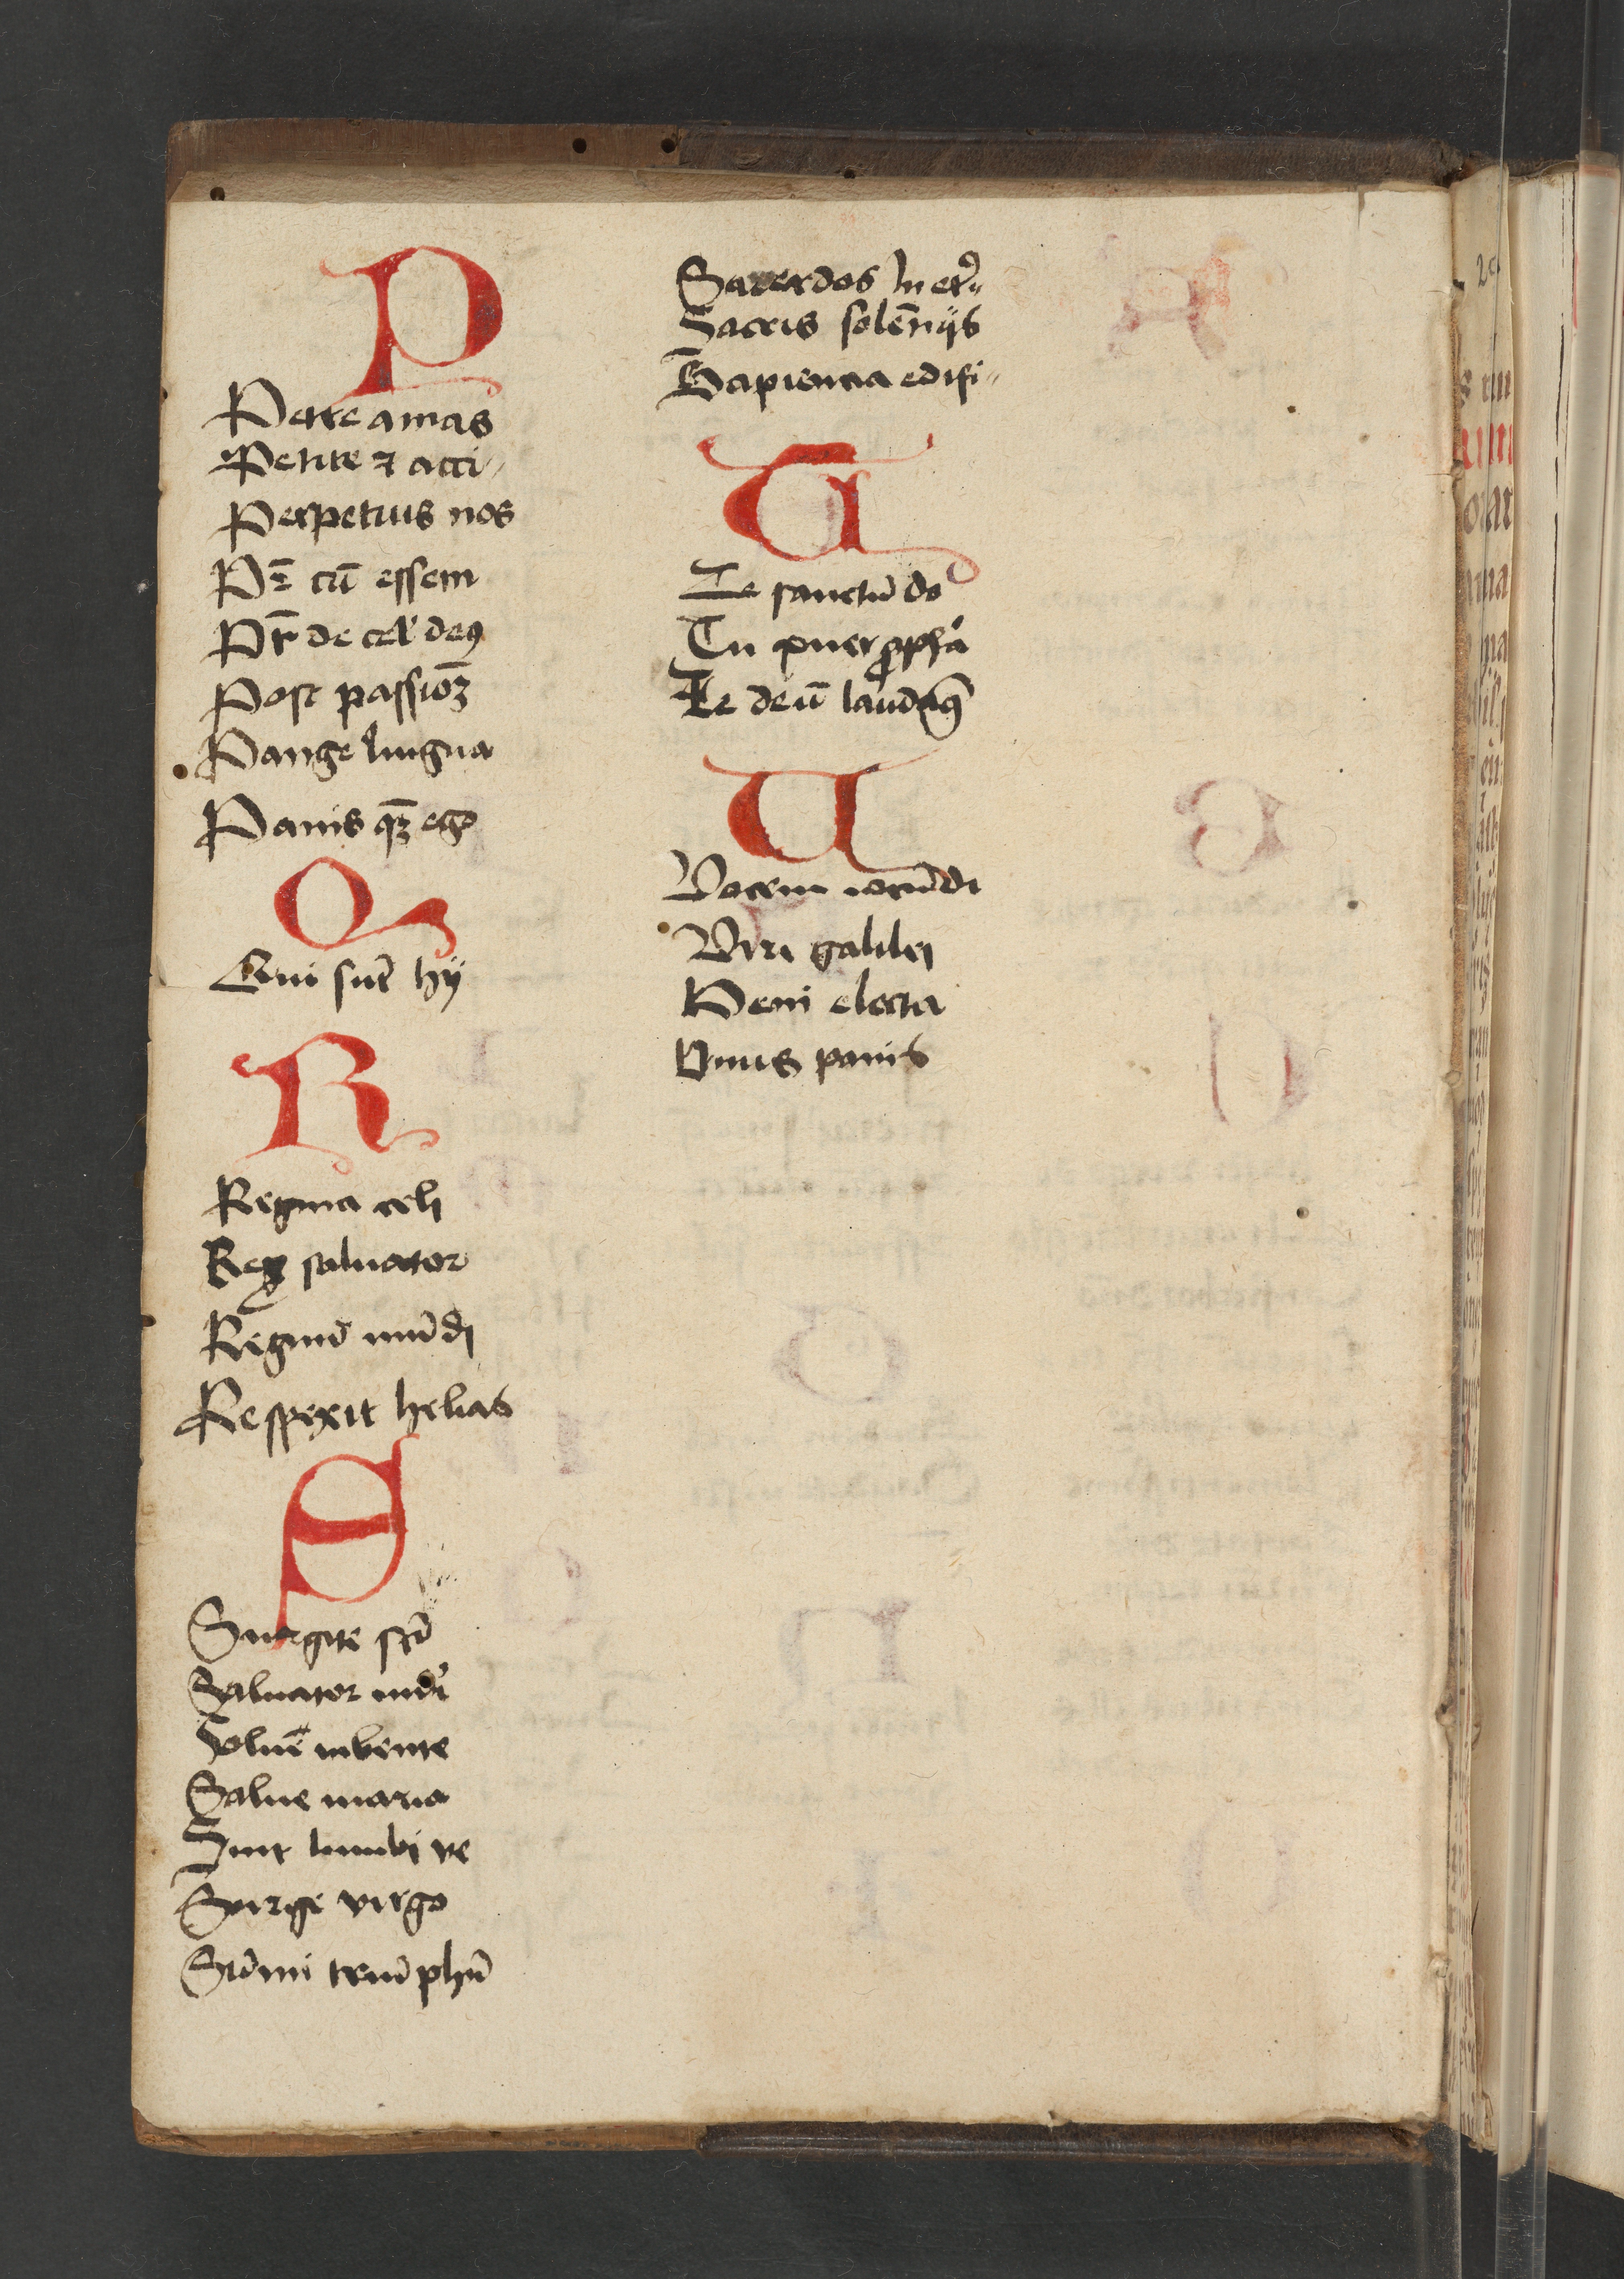 P
Petre amas
Petite ⁊ acci〃
Perpetuis nos
Pꝛ̄ cū essem
Pr̄ de cel' deꝯ
Post passioꝫ
Pange lingua
Panis qꝫ ego
Q
Qui sūt hij
R
Regina celi
Reꝝ saluator
Regnū mūdi
Respexit helias
S
Surgite sc̄i
Saluator mūdi
Soluē iubente
Salue maria
Sint lumbi ve
Surge virgo
Sūmi triūphū
Sacerdos in et〃
Sacris solēnijs
Sapiencia edifi〃
T
Te sanctū do
Tu puer ꝓpha
Te deū laudamꝰ
U
Vocem iocūdi
Viri galilei
Veni electa
Vnus panis